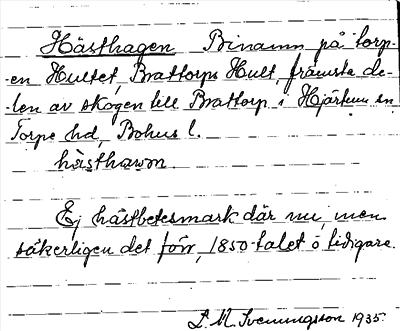 Hästhagen Binamn på torp-
-en Hultet, Brattorps Hult, främsta de-
-len av skogen till Brattorp i Hjärtum sn
Torpe hd, Bohus l.
hàsthawm.
Ej hästbetesmark där nu, men
säkerligen det förr, 1850-talet o tidigare.
L. M. Svenungsson 1935.